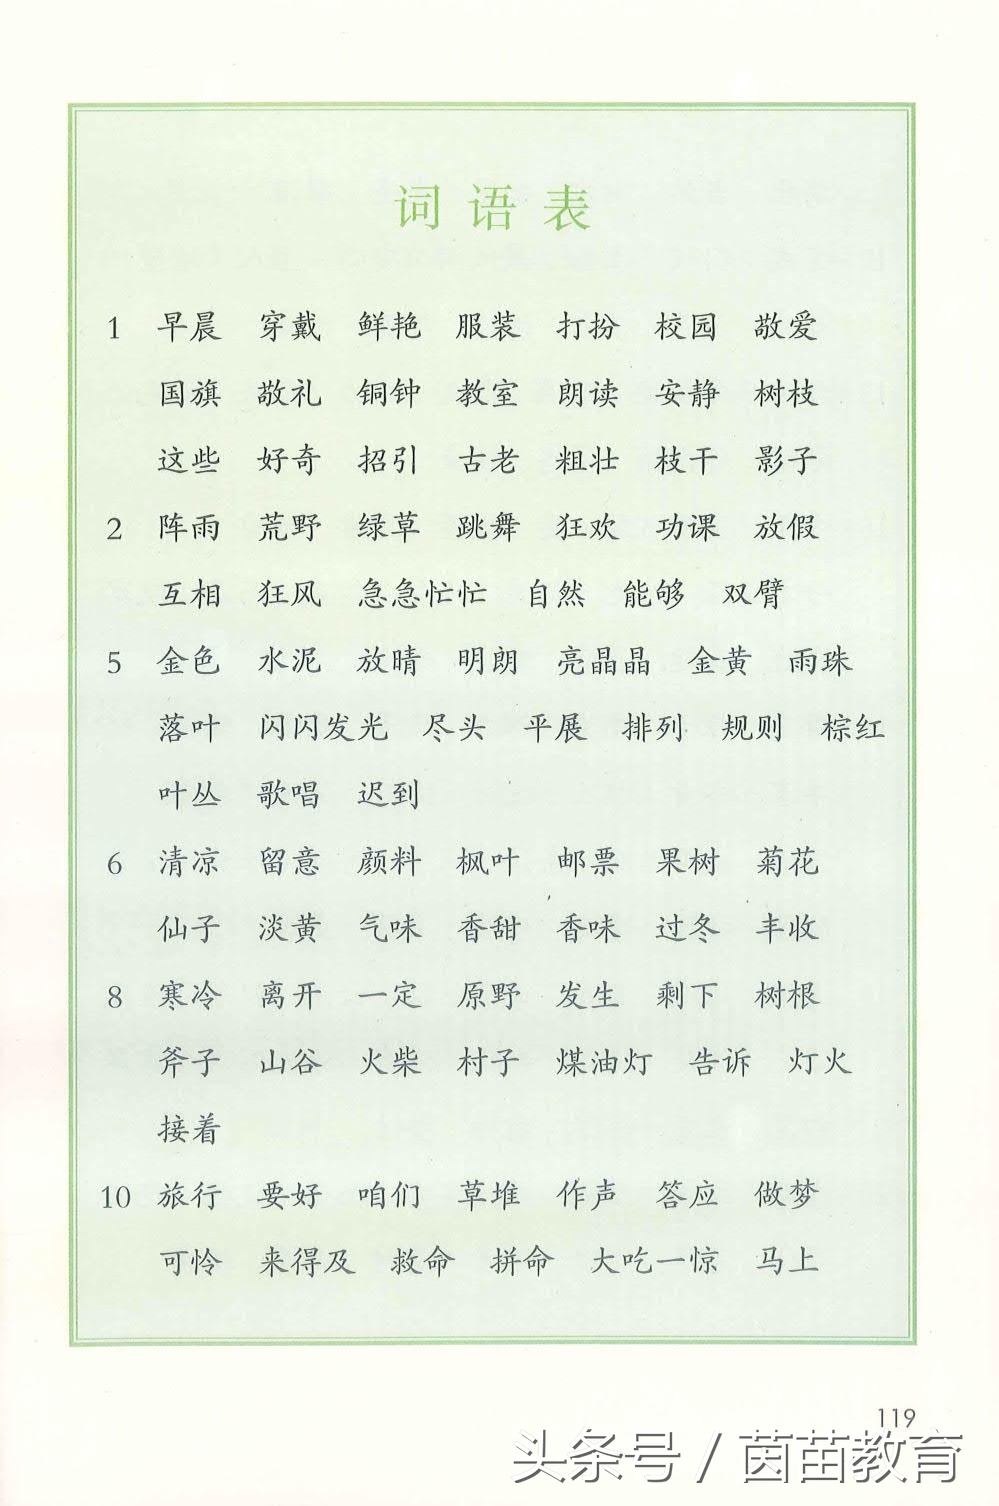 词语表
1 早晨 穿戴 鲜艳 服装 打扮 校园 敬爱
国旗 敬礼 铜钟 教室 朗读 安静 树枝
这些 好奇 招引 古老 粗壮 枝干 影子
2 阵雨 荒野 绿草 跳舞 狂欢 功课 放假
互相 狂风 急急忙忙 自然 能够 双臂
5 金色 水泥 放晴 明朗 亮晶晶 金黄 雨珠
落叶 闪闪发光 尽头 平展 排列 规则 棕红
叶丛 歌唱 迟到
6 清凉 留意 颜料 枫叶 邮票 果树 菊花
仙子 淡黄 气味 香甜 香味 过冬 丰收
8 寒冷 离开 一定 原野 发生 剩下 树根
斧子 山谷 火柴 村子 煤油灯 告诉 灯火
接着
10 旅行 要好 咱们 草堆 作声 答应 做梦
可怜 来得及 救命 拼命 大吃一惊 马上
119
头条号 / 茵苗教育